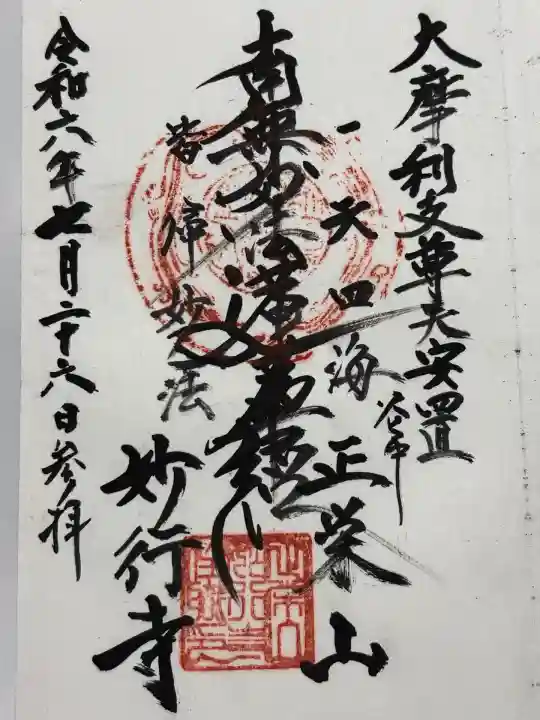 大摩利支尊天安置
谷中
正栄山
一天四海
南無妙法蓮華経
皆帰妙法
妙行寺
令和六年七月二十六日参拝